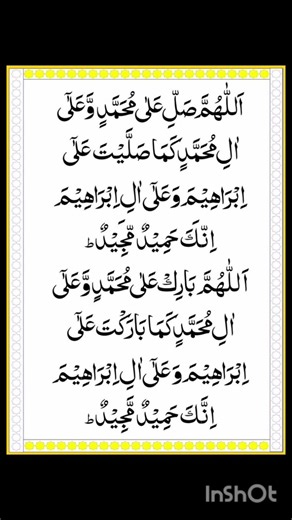 اَللّٰهُمَّ صَلِّ عَلٰى مُحَمَّدٍ وَّعَلٰٓى
اٰلِ مُحَمَّدٍ كَمَا صَلَّيْتَ عَلٰٓى
اِبْرَاهِيْمَ وَعَلٰٓى اٰلِ اِبْرَاهِيْمَ
اِنَّكَ حَمِيْدٌ مَّجِيْدٌ ؕ
اَللّٰهُمَّ بَارِكْ عَلٰى مُحَمَّدٍ وَّعَلٰٓى
اٰلِ مُحَمَّدٍ كَمَا بَارَكْتَ عَلٰٓى
اِبْرَاهِيْمَ وَعَلٰٓى اٰلِ اِبْرَاهِيْمَ
اِنَّكَ حَمِيْدٌ مَّجِيْدٌ ؕ
InShOt